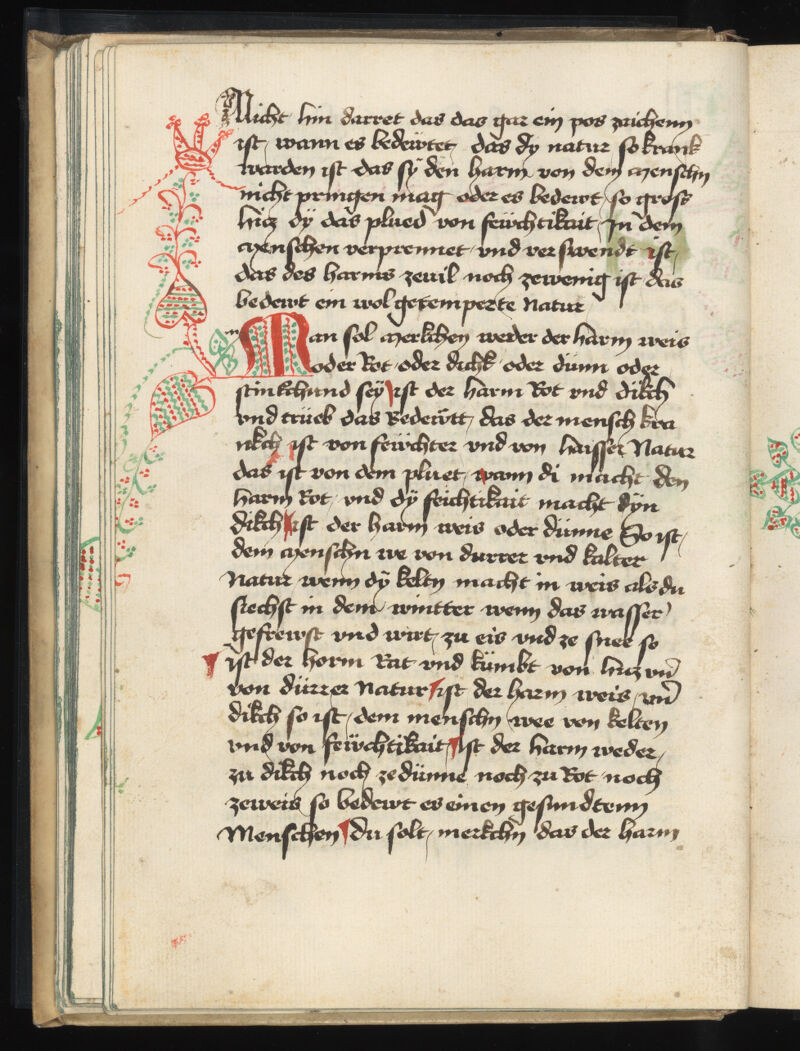 Nicht hin darret das das gar ein pos zaichenn
ist wann es bedewtet das dy natur so krank
warden ist das sy den harm von dem menschn
nicht pringen mag oder es bedewt so gross
hicz dy das plued von fewchtikait In dem
menschen verprennet vnd verswendt ist
das des harms zeuil noch zewenig ist das
bedewt ein wol getemperte Natur
Man sol merkchen weder der harm weis
oder Rot oder dichk oder dünn oder
stinkchund sey ist der harm Rot vnd dikch
vnd trüeb das Bedewtt das der mensch kra
nkch ist von fewchter vnd von haisser Natur
das ist von dem pluet wann di macht den
harm Rot vnd dy feichtikait macht dyn
dikch ist der harm weis oder dünne So ist
dem menschn we von durrer vnd kalter
Natur wenn dy keltn macht in weis als du
siechst in dem wintter wenn das wasser
gefrewst vnd wirt zu eis vnd ze snee so
ist der horm Rat vnd kümbt von hicz vnd
von dürrer Natur ist der harm weis vnd
dikch so ist dem menschn wee von kelten
vnd von fewchtikait ist der harm weder
zu dikch noch ze dünne noch zu Rot noch
zeweis so bedewt es einen gesundtenn
Menschen du solt merkchn das der harm